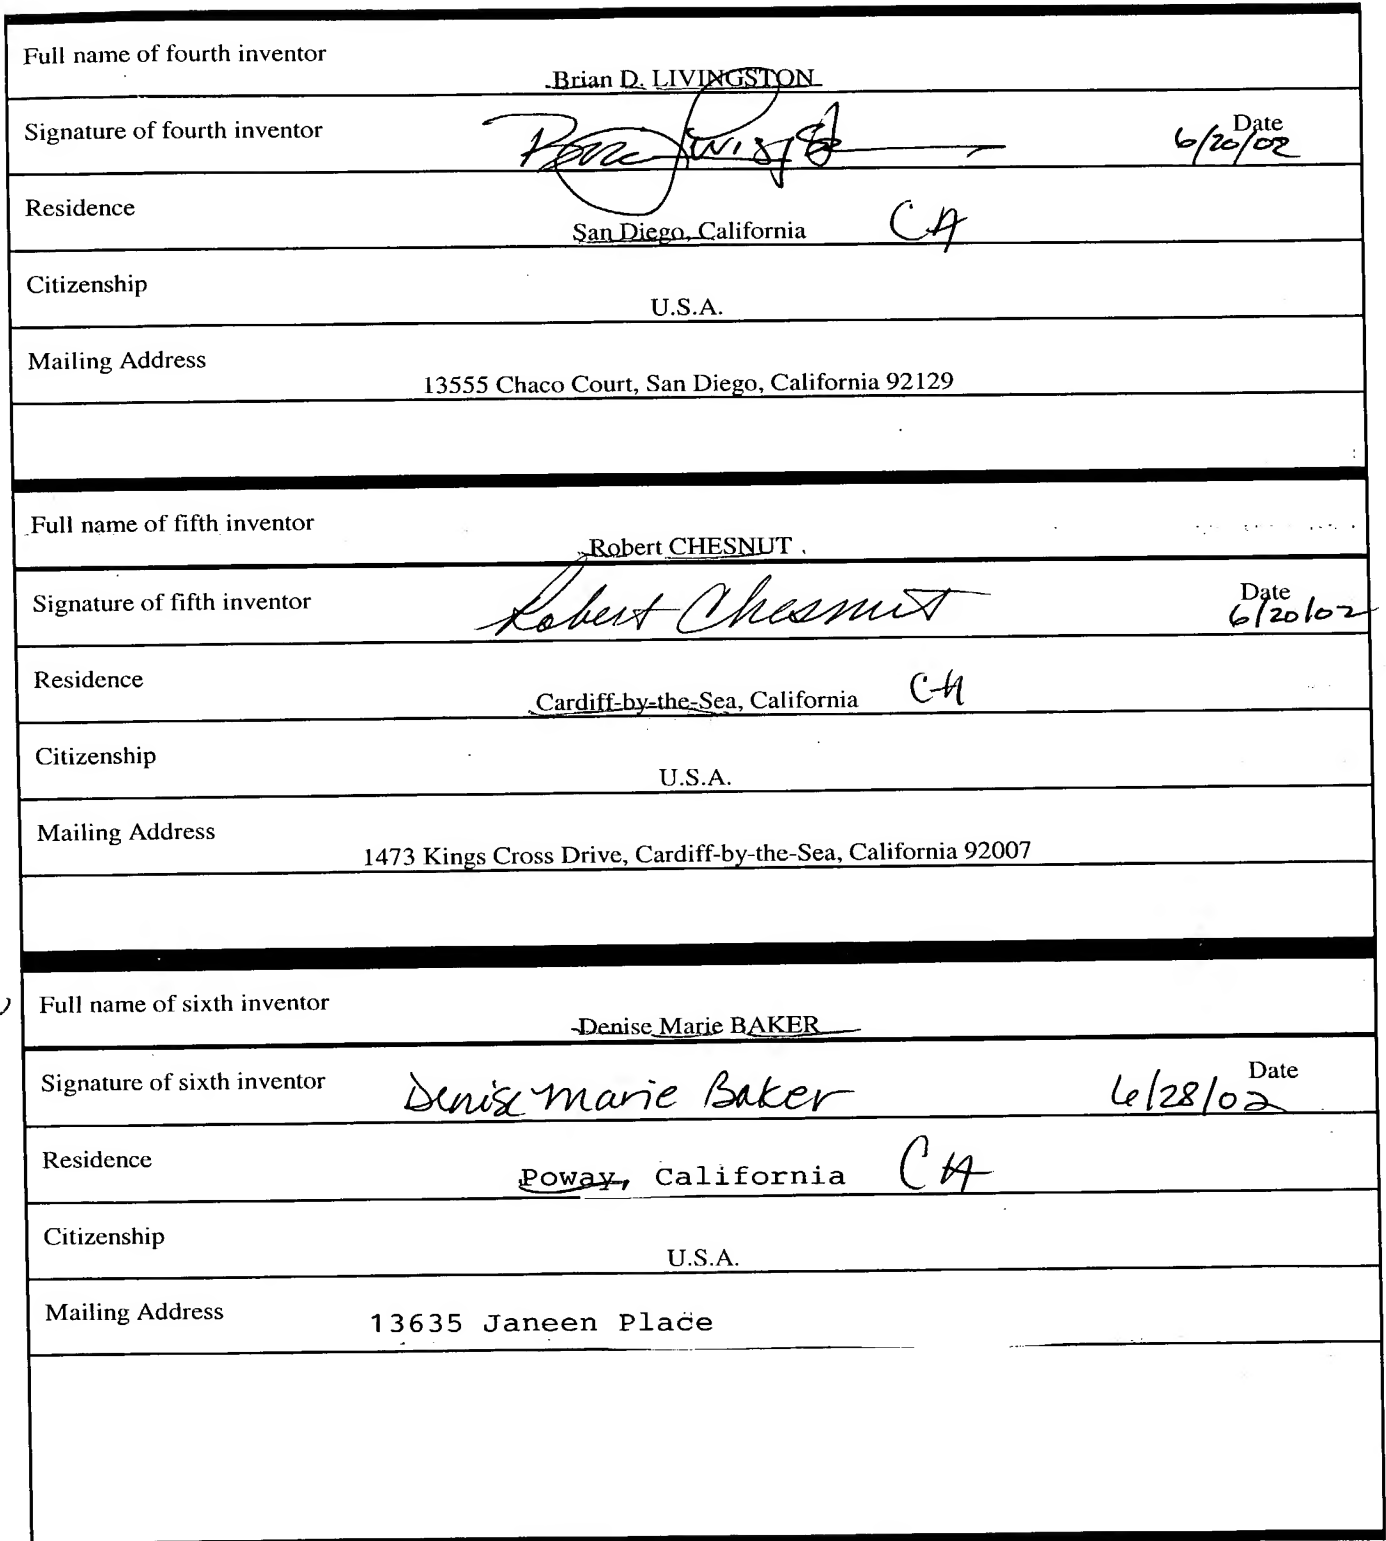 Full name of fourth inventor
Brian D. LIVINGSTON
Signature of fourth inventor
Date
6/20/02
Residence
San Diego, California CA
Citizenship
U.S.A.
Mailing Address
13555 Chaco Court, San Diego, California 92129
Full name of fifth inventor
Robert CHESNUT
Signature of fifth inventor Robert Chesnut Date
6/20/02
Residence
Cardiff-by-the-Sea, California CA
Citizenship
U.S.A.
Mailing Address
1473 Kings Cross Drive, Cardiff-by-the-Sea, California 92007
Full name of sixth inventor
Denise Marie BAKER
Signature of sixth inventor Denise Marie Baker 6/28/02 Date
Residence
Poway, California CA
Citizenship
U.S.A.
Mailing Address
13635 Janeen Place